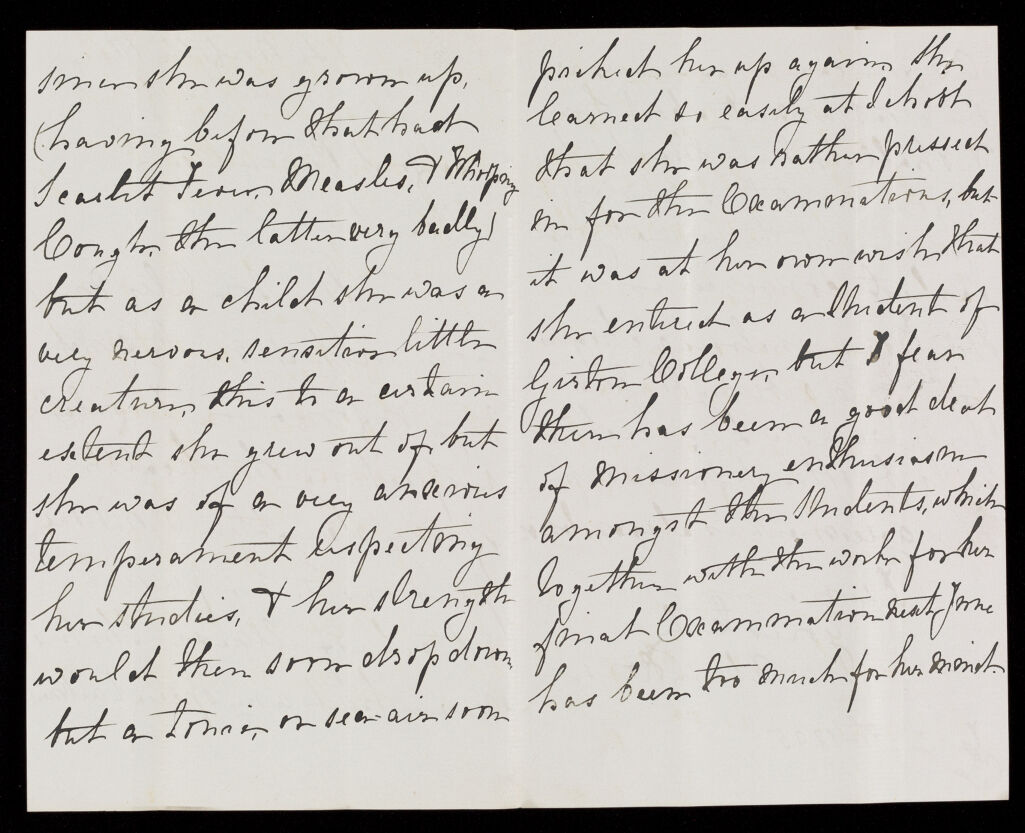 since she was grown up,
(having before that had
Scarlet Fever, Measles, & Whooping
Cough, the latter very badly)
but as a child she was a
very nervous, sensitive little
creature, this to a certain
extent she grew out of, but
she was of a very anxious
temperament respecting
her studies, & her strength
would then soon drop down,
but a Tonic, or sea-air soon
picked her up again, she
learned so easily at School
that she was rather pressed
in for the Examinations, but
it was at her own wish, that
she entered as a Student of
Girton College, but I fear
there has been a good deal
of missionery enthusiasm
amongst the Students, which
together with the work for her
final Examination next June
has been too much for her mind.